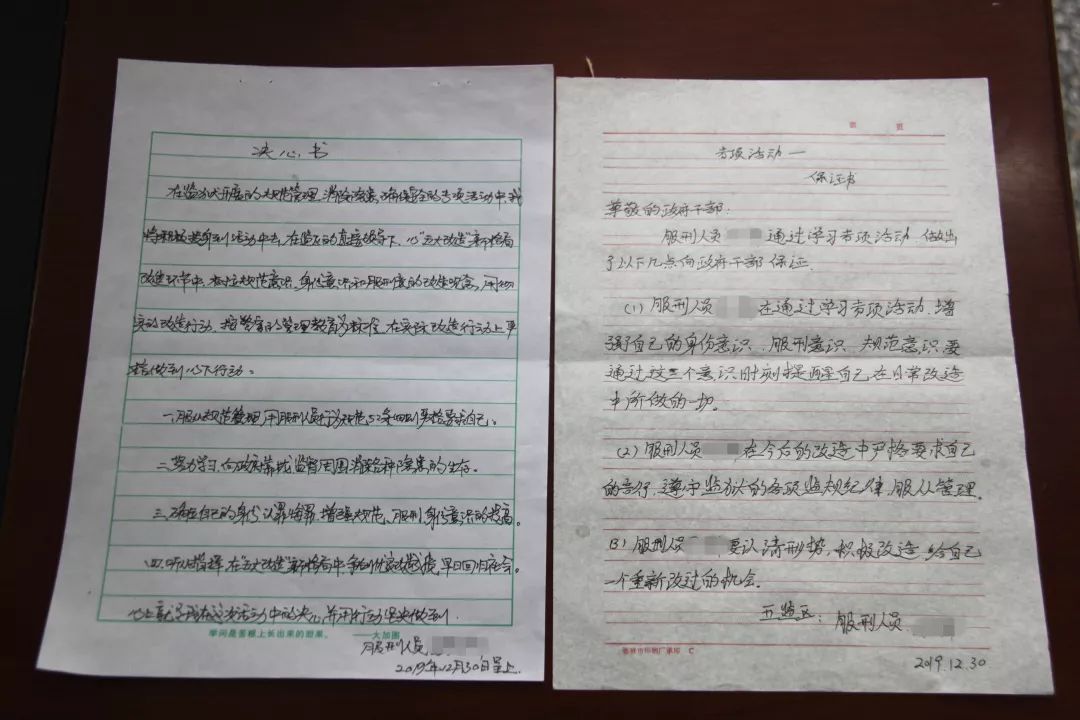 决心书
在监狱开展的规范管理、消除隐患、确保安全的专项活动中,我
将积极投身到活动中去,在监区的直接领导下,以"五大改造"新格局
改造环节中,树立规范意识、身份意识和服刑意识的改造观念,用切
实的改造行动,按警官的管理教育为标准,在实际改造行动上严
格做到以下行动:
一、服从规范管理,用服刑人员行为规范52条细则严格要求自己。
二、努力学习,向政府靠拢,监督周围消除各种隐患的生存。
三、确立自己的身份,认罪悔罪,增强规范、服刑、身份意识的提高。
四、听从指挥,在"五大改造"新格局中争创优良成绩,早日回归社会。
以上就是我在这次活动中的决心,并用行动坚决做到.
学问是苦根上长出来的甜果。 ——大加图
服刑人员
2019年12月30日呈上
第 页
专项活动—
保证书
尊敬的政府干部:
服刑人员 通过学习专项活动,做出
了以下几点向政府干部保证.
(1)服刑人员 在通过学习专项活动,增
强了自己的身份意识、服刑意识、规范意识,要
通过这三个意识时刻提醒自己在日常改造
中所做的一切.
(2)服刑人员 在今后的改造中严格要求自己
的言行,遵守监狱的各项监规纪律,服从管理.
(3)服刑人员 要认清形势,积极改造,给自己
一个重新改过的机会.
五监区: 服刑人员
2019.12.30